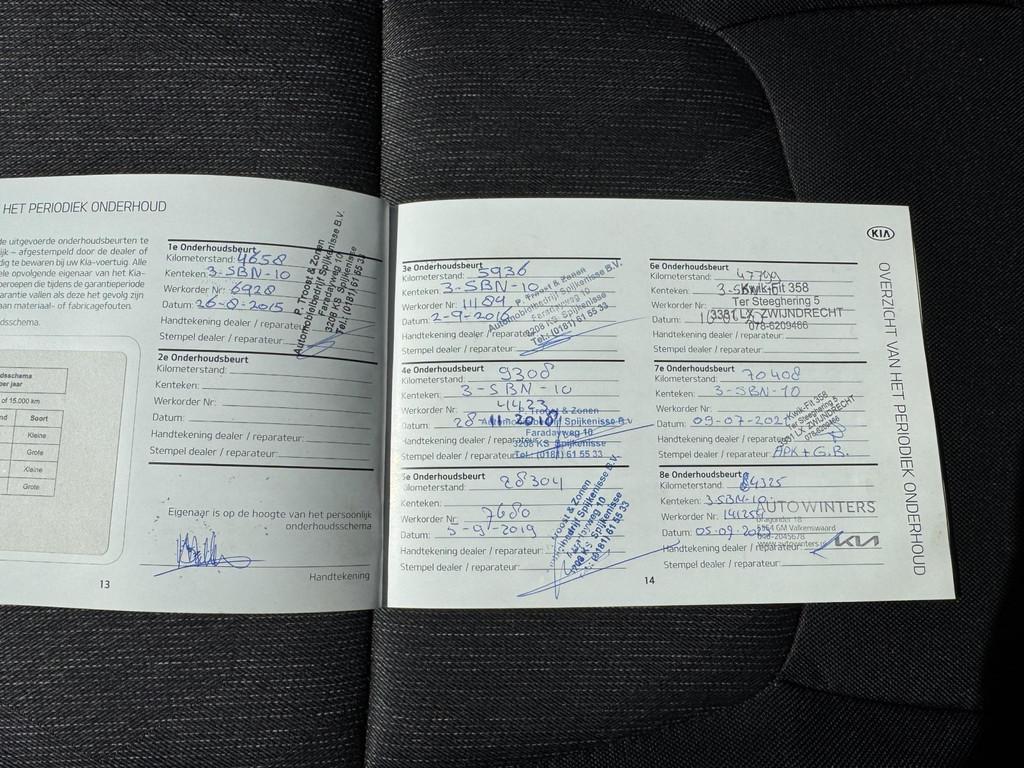 HET PERIODIEK ONDERHOUD
de uitgevoerde onderhoudsbeurten te
ijk – afgestempeld door de dealer of
dig te bewaren bij uw Kia-voertuig. Alle
ele opvolgende eigenaar van het Kia-
beroepen die tijdens de garantieperiode
arantie vallen als deze het gevolg zijn
aan materiaal- of fabricagefouten.
dsschema.
dsschema
per jaar
of 15.000 km
nd Soort
Kleine
Grote
Kleine
Grote
1e Onderhoudsbeurt
Kilometerstand: 4658
Kenteken: 3-SBN-10
Werkorder Nr: 6928
Datum: 26-8-2015
Handtekening dealer / reparateur:
Stempel dealer / reparateur:
P. Troost & Zonen
Automobielbedrijf Spijkenisse B.V.
Faradayweg 10
3208 KS Spijkenisse
Tel.: (0181) 61 55 33
2e Onderhoudsbeurt
Kilometerstand:
Kenteken:
Werkorder Nr:
Datum:
Handtekening dealer / reparateur:
Stempel dealer / reparateur:
Eigenaar is op de hoogte van het persoonlijk
onderhoudsschema
Handtekening
13
3e Onderhoudsbeurt
Kilometerstand: 5936
Kenteken: 3-SBN-10
Werkorder Nr: 11184
Datum: 2-9-2016
Handtekening dealer / reparateur:
Stempel dealer / reparateur:
P. Troost & Zonen
Automobielbedrijf Spijkenisse B.V.
Faradayweg 10
3208 KS Spijkenisse
Tel.: (0181) 61 55 33
4e Onderhoudsbeurt
Kilometerstand: 9308
Kenteken: 3-SBN-10
Werkorder Nr: 4423
Datum: 28-11-2018
Handtekening dealer / reparateur:
Stempel dealer / reparateur:
P. Troost & Zonen
Automobielbedrijf Spijkenisse B.V.
Faradayweg 10
3208 KS Spijkenisse
Tel.: (0181) 61 55 33
5e Onderhoudsbeurt
Kilometerstand: 28304
Kenteken:
Werkorder Nr: 7680
Datum: 5-9-2019
Handtekening dealer / reparateur:
Stempel dealer / reparateur:
Troost & Zonen
Spijkenisse B.V.
Faradayweg 10
3208 KS Spijkenisse
Tel.: (0181) 61 55 33
14
KIA
OVERZICHT VAN HET PERIODIEK ONDERHOUD
6e Onderhoudsbeurt
Kilometerstand:
Kenteken:
Werkorder Nr:
Datum:
Handtekening dealer / reparateur:
Stempel dealer / reparateur:
Kwik-Fit 358
Ter Steeghering 5
3331 LX ZWIJNDRECHT
078-6209466
7e Onderhoudsbeurt
Kilometerstand: 70408
Kenteken: 3-SBN-10
Werkorder Nr:
Datum: 09-07-202
Handtekening dealer / reparateur:
Stempel dealer / reparateur: APK + G.B.
Kwik-Fit 358
Ter Steeghering 5
3331 LX ZWIJNDRECHT
078-6209466
8e Onderhoudsbeurt
Kilometerstand: 84325
Kenteken: 3-SBN-10
Werkorder Nr: 141254
Datum: 05-09-
Handtekening dealer / reparateur:
Stempel dealer / reparateur:
AUTOWINTERS
Dragonder 18
5554 GM Valkenswaard
www.autowinters.nl
KIA